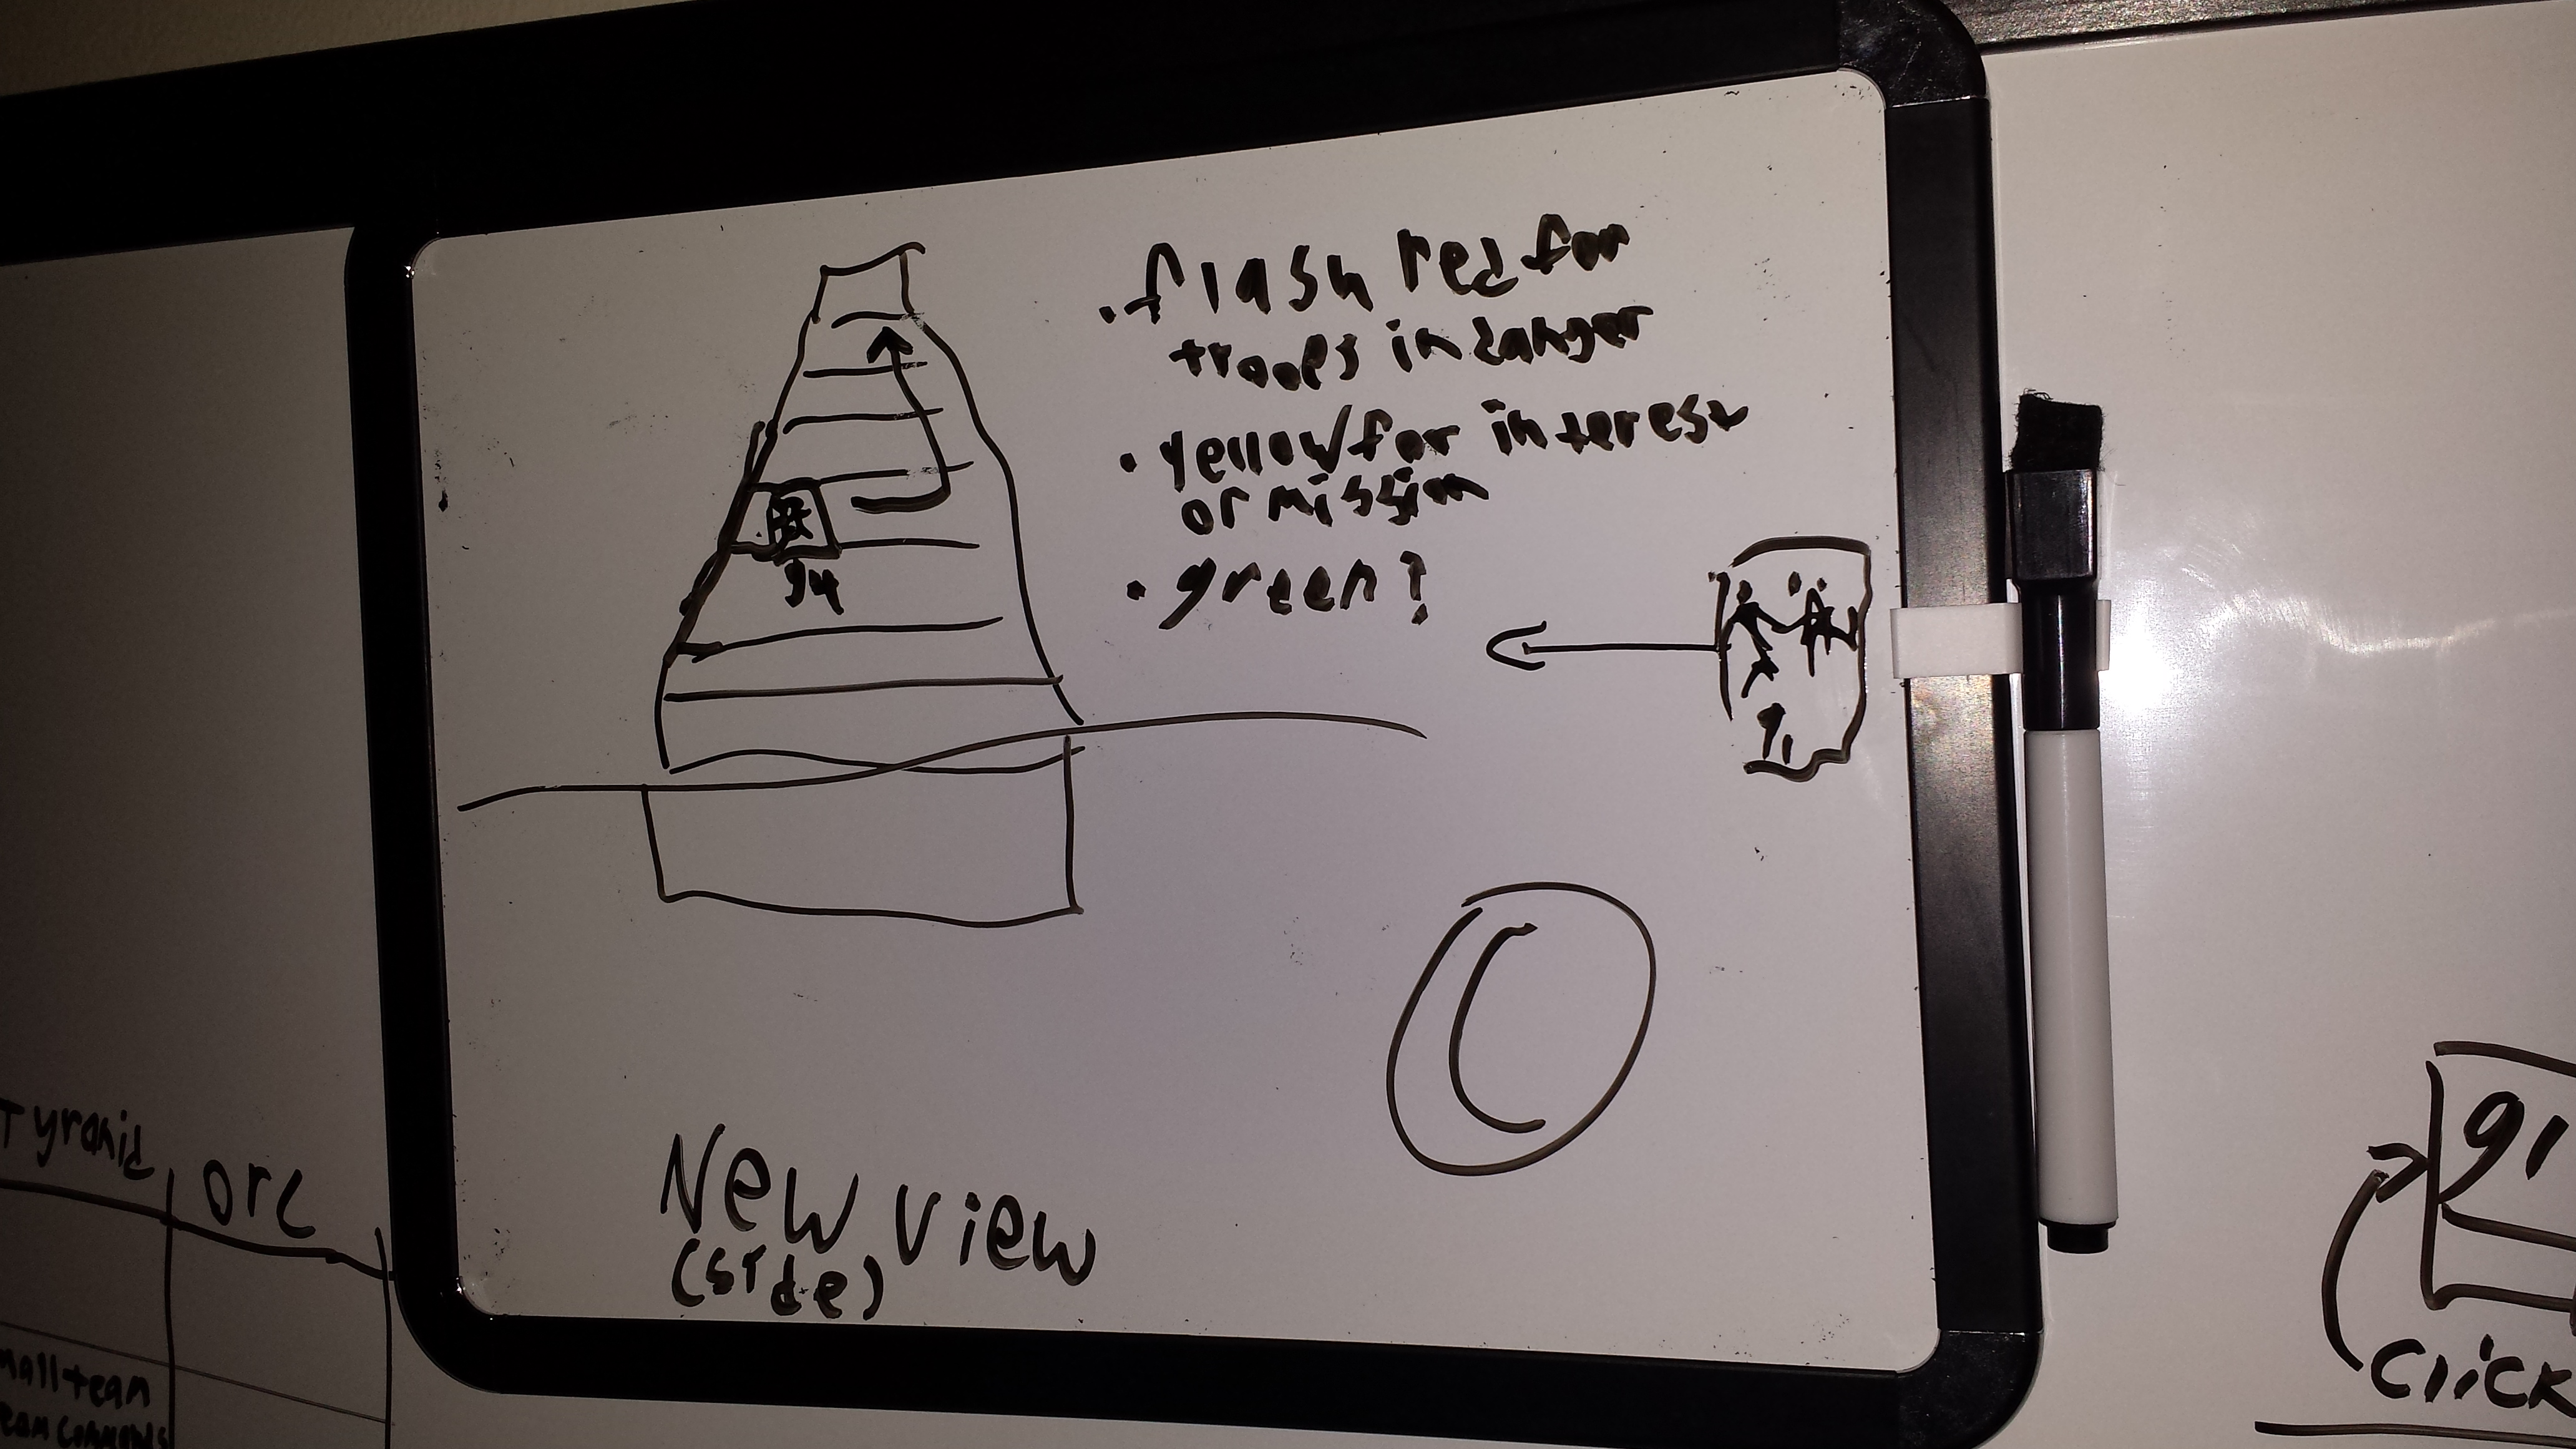 • flash red for
troops in danger
• yellow for interest
or mission
• green?
94
91
New view
(side)
Tyranid
Orc
mall team
eam commands
91
Click